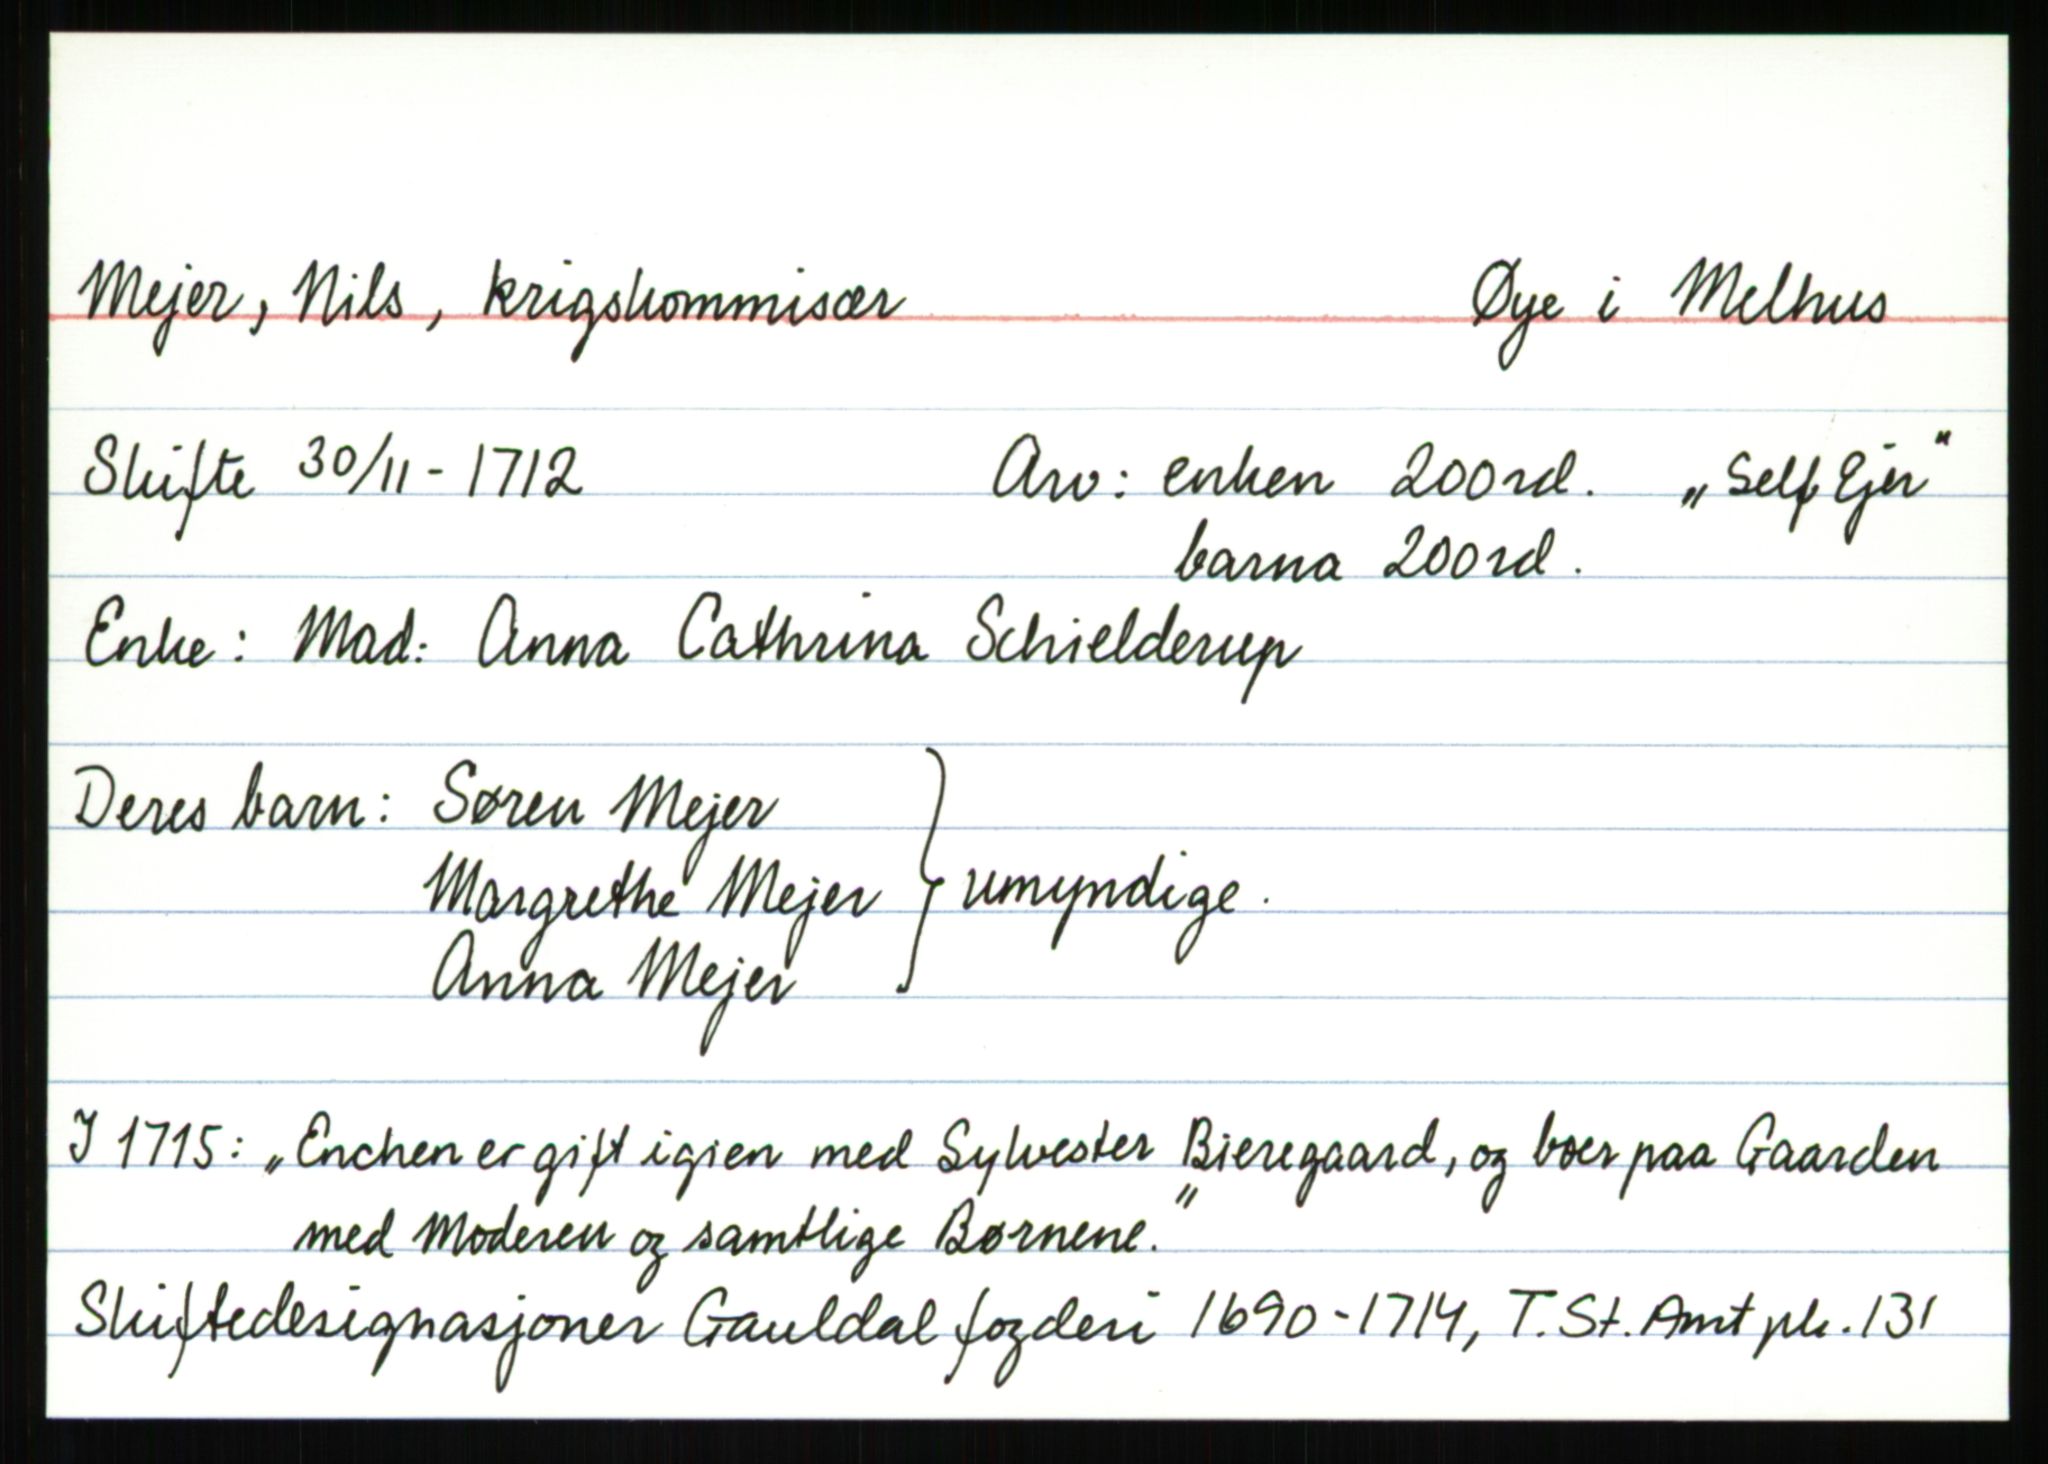 Mejer, Nils, krigskommisær Øye i Melhus
Skifte 30/11-1712 Arv: enken 200rd. „Self Ejer"
barna 200rd.
Enke: Mad: Anna Cathrina Schielderup
Deres barn: Søren Mejer
Margrethe Mejer } umyndige.
Anna Mejer
I 1715: „Enchen er gift igien med Sylvester Bieregaard, og boer paa Gaarden
med Moderen og samtlige Børnene."
Skiftedesignasjoner Gauldal fogderi 1690-1714, T. St. Amt pk. 131